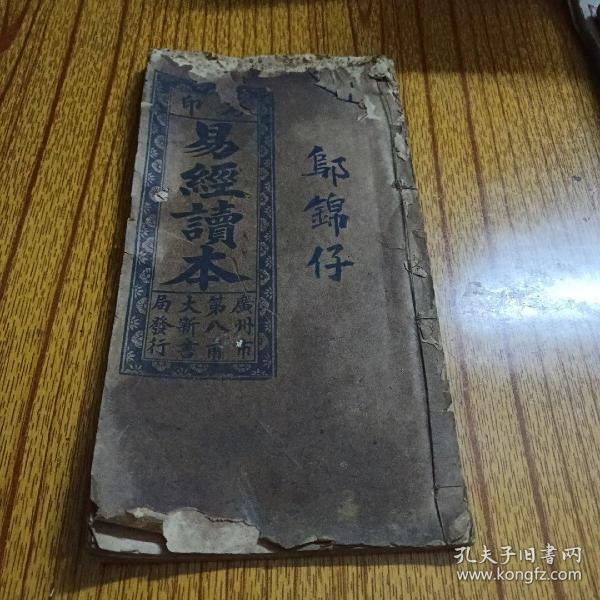 印
易經讀本
廣州市
第八甫
大新書
局發行
鄔錦仔
孔夫子旧书网
www.kongfz.com